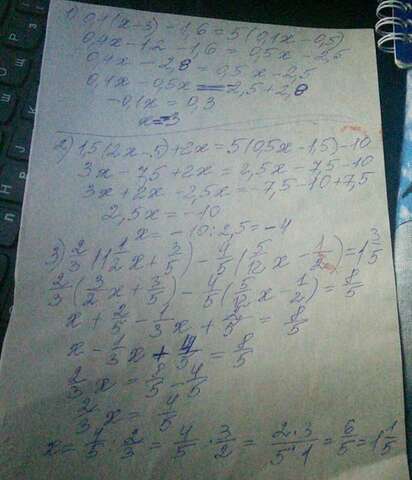 1) 0,4(x-3) - 1,6 = 5(0,1x - 0,5)
0,4x - 1,2 - 1,6 = 0,5x - 2,5
0,4x - 2,8 = 0,5x - 2,5
0,4x - 0,5x = -2,5 + 2,8
-0,1x = 0,3
x = -3
2) 1,5(2x-5) + 2x = 5(0,5x - 1,5) - 10
3x - 7,5 + 2x = 2,5x - 7,5 - 10
3x + 2x - 2,5x = -7,5 - 10 + 7,5
2,5x = -10
x = -10 : 2,5 = -4
3) 2/3 (1 1/2 x + 3/5) - 4/5 (5/12 x - 1/2) = 1 3/5
2/3 (3/2 x + 3/5) - 4/5 (5/12 x - 1/2) = 8/5
x + 2/5 - 1/3 x + 2/5 = 8/5
x - 1/3 x + 4/5 = 8/5
2/3 x = 8/5 - 4/5
2/3 x = 4/5
x = 4/5 : 2/3 = 4/5 · 3/2 = 2·3/5·1 = 6/5 = 1 1/5